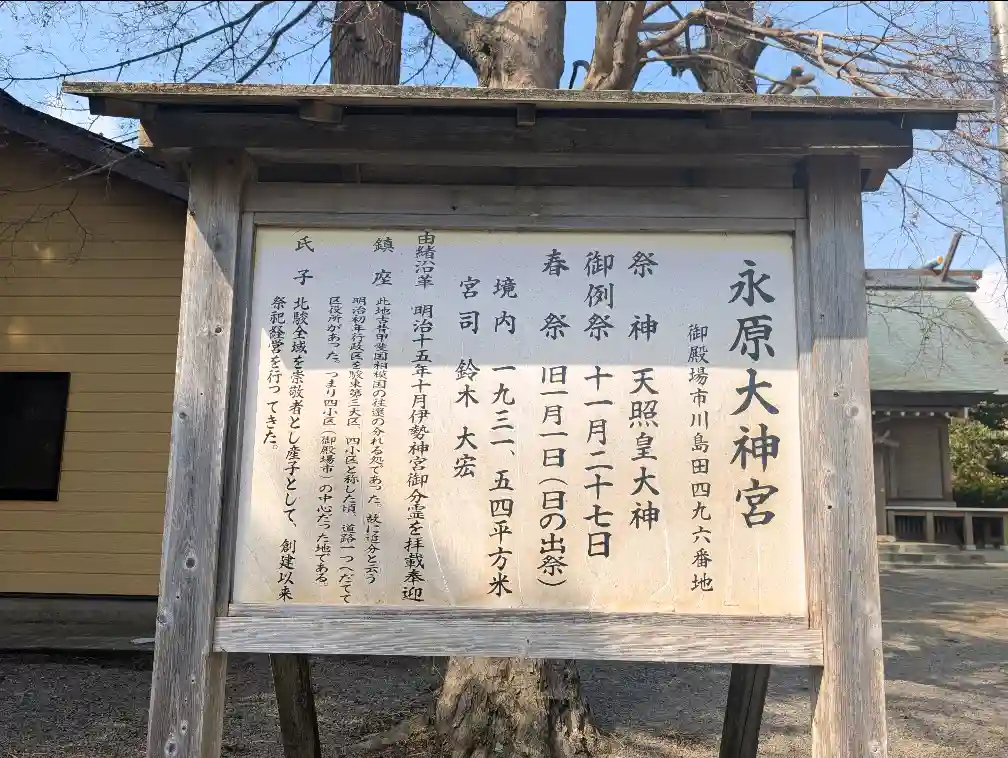 永原大神宮
御殿場市川島田四九六番地
祭神 天照皇大神
御例祭 十一月二十七日
春祭 旧一月一日(日の出祭)
境内 一九三一、五四平方米
宮司 鈴木 大宏
由緒沿革 明治十五年十月伊勢神宮御分霊を拝載奉迎
鎮座 此地古昔甲斐国相模国の往還の分れる処であった。故に追分と云う
明治初年行政区を駿東第三大区、四小区と称した頃、道路一つへだてて
区役所があった。つまり四小区(御殿場市)の中心だった地である。
氏子 北駿全域を崇敬者とし産子として、創建以来
祭祀経営を行つてきた。